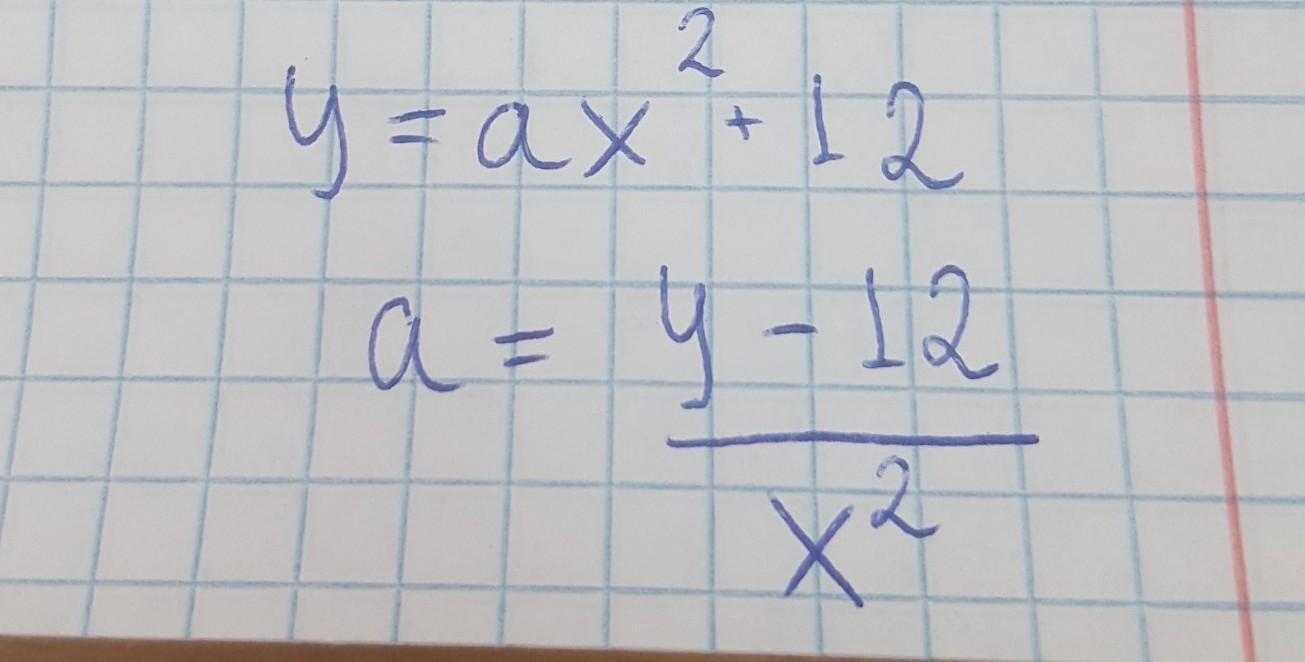 y = ax² + 12
a = y - 12
x²